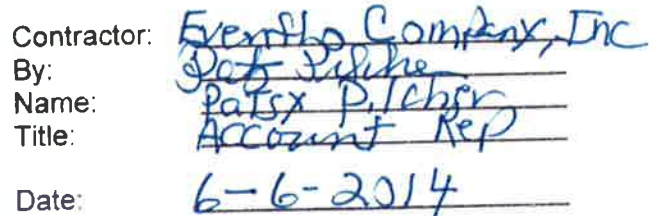 Contractor: Evenflo Company, Inc
By: Pat Pilcher
Name: Patsy Pilcher
Title: Account Rep
Date: 6-6-2014